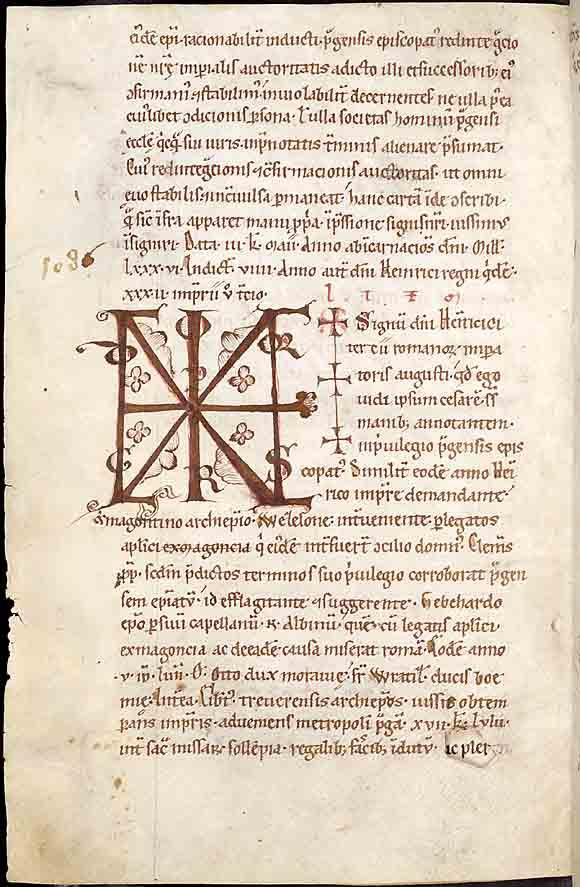 eidē ep̄i racionabilit̄ inducti. p̄gensis episcopatꝰ redinteg̃cio
nē nr̄ę imp̄ialis auctoritatis adicto illi et successorib; eiꝰ
ꝯfirmamꝰ ⁊ stabilimꝰ inuiolabilit̄ decernentes ne ulla p̄ea
cuiuslibet ꝯdicionis ꝑsona. ł ulla societas hominū p̄gensi
eccłe q̇cq̇̃ sui iuris inp̄notatis t̄minis alienare p̄sumat.
Cuiꝰ redinteg̃cionis ⁊ cfirmacionis auctoritas. ut omni
euo stabilis ⁊ incūulsa ꝑmaneat. hanc cartā īde ꝯscribi.
q̄ sic īfra apparet manu ꝓpa. īp̄ssione signi sn̄ri iussimus
īsigniri. Data. iii. k̄. Maii. Anno abīcarnaciōs dn̄i. Mill̄.
lxxx. vi. Indict̄. viiii. Anno aut̄ dn̄i Heinrici regni q̇dē.
1086
xxx. ii. imp̄ii v̊ t̄cio.
Signū dn̄i Henrici
ter cii romanoꝝ. inpa
toris augusti. qd̄ ego
uidi ipsum cesarē ss
manib; annotantem.
inp̄uilegio p̄gensis epis
copatꝰ. Similit̄ eodē anno Hei
rico imp̄re demandante
magontino archiep̄io. Welesone. int̄ueniente. ꝑlegatos
aplici exmagoncia q̇ eidē int̄fuer̄t ꝯcilio domnꝰ Clem̄s
pp̄. sc̄dm p̄dictos terminos suo p̄uilegio corroborat p̄gen
sem ep̄iatū. id efflagitante ⁊ suggerente. Gebehardo
ep̄o ꝑ suū capellanū. n̄. albinū. quē cū legatis aplici
exmagoncia ac deeadē causa miserat romā. Eodē anno
v. iđ. Iunii. O. Otto dux morauię. fr̄ Wratił. ducis boe
mię. Antea. Eilb̄tꝰ. treuerensis archiep̄os. iussis obtem
ꝑans imp̄ris. adueniens metropolī p̄gā. xvii. k̄. Iulii.
int̄ sac̄ missaꝝ sollēpnia. regalib; fascib; īdutū.